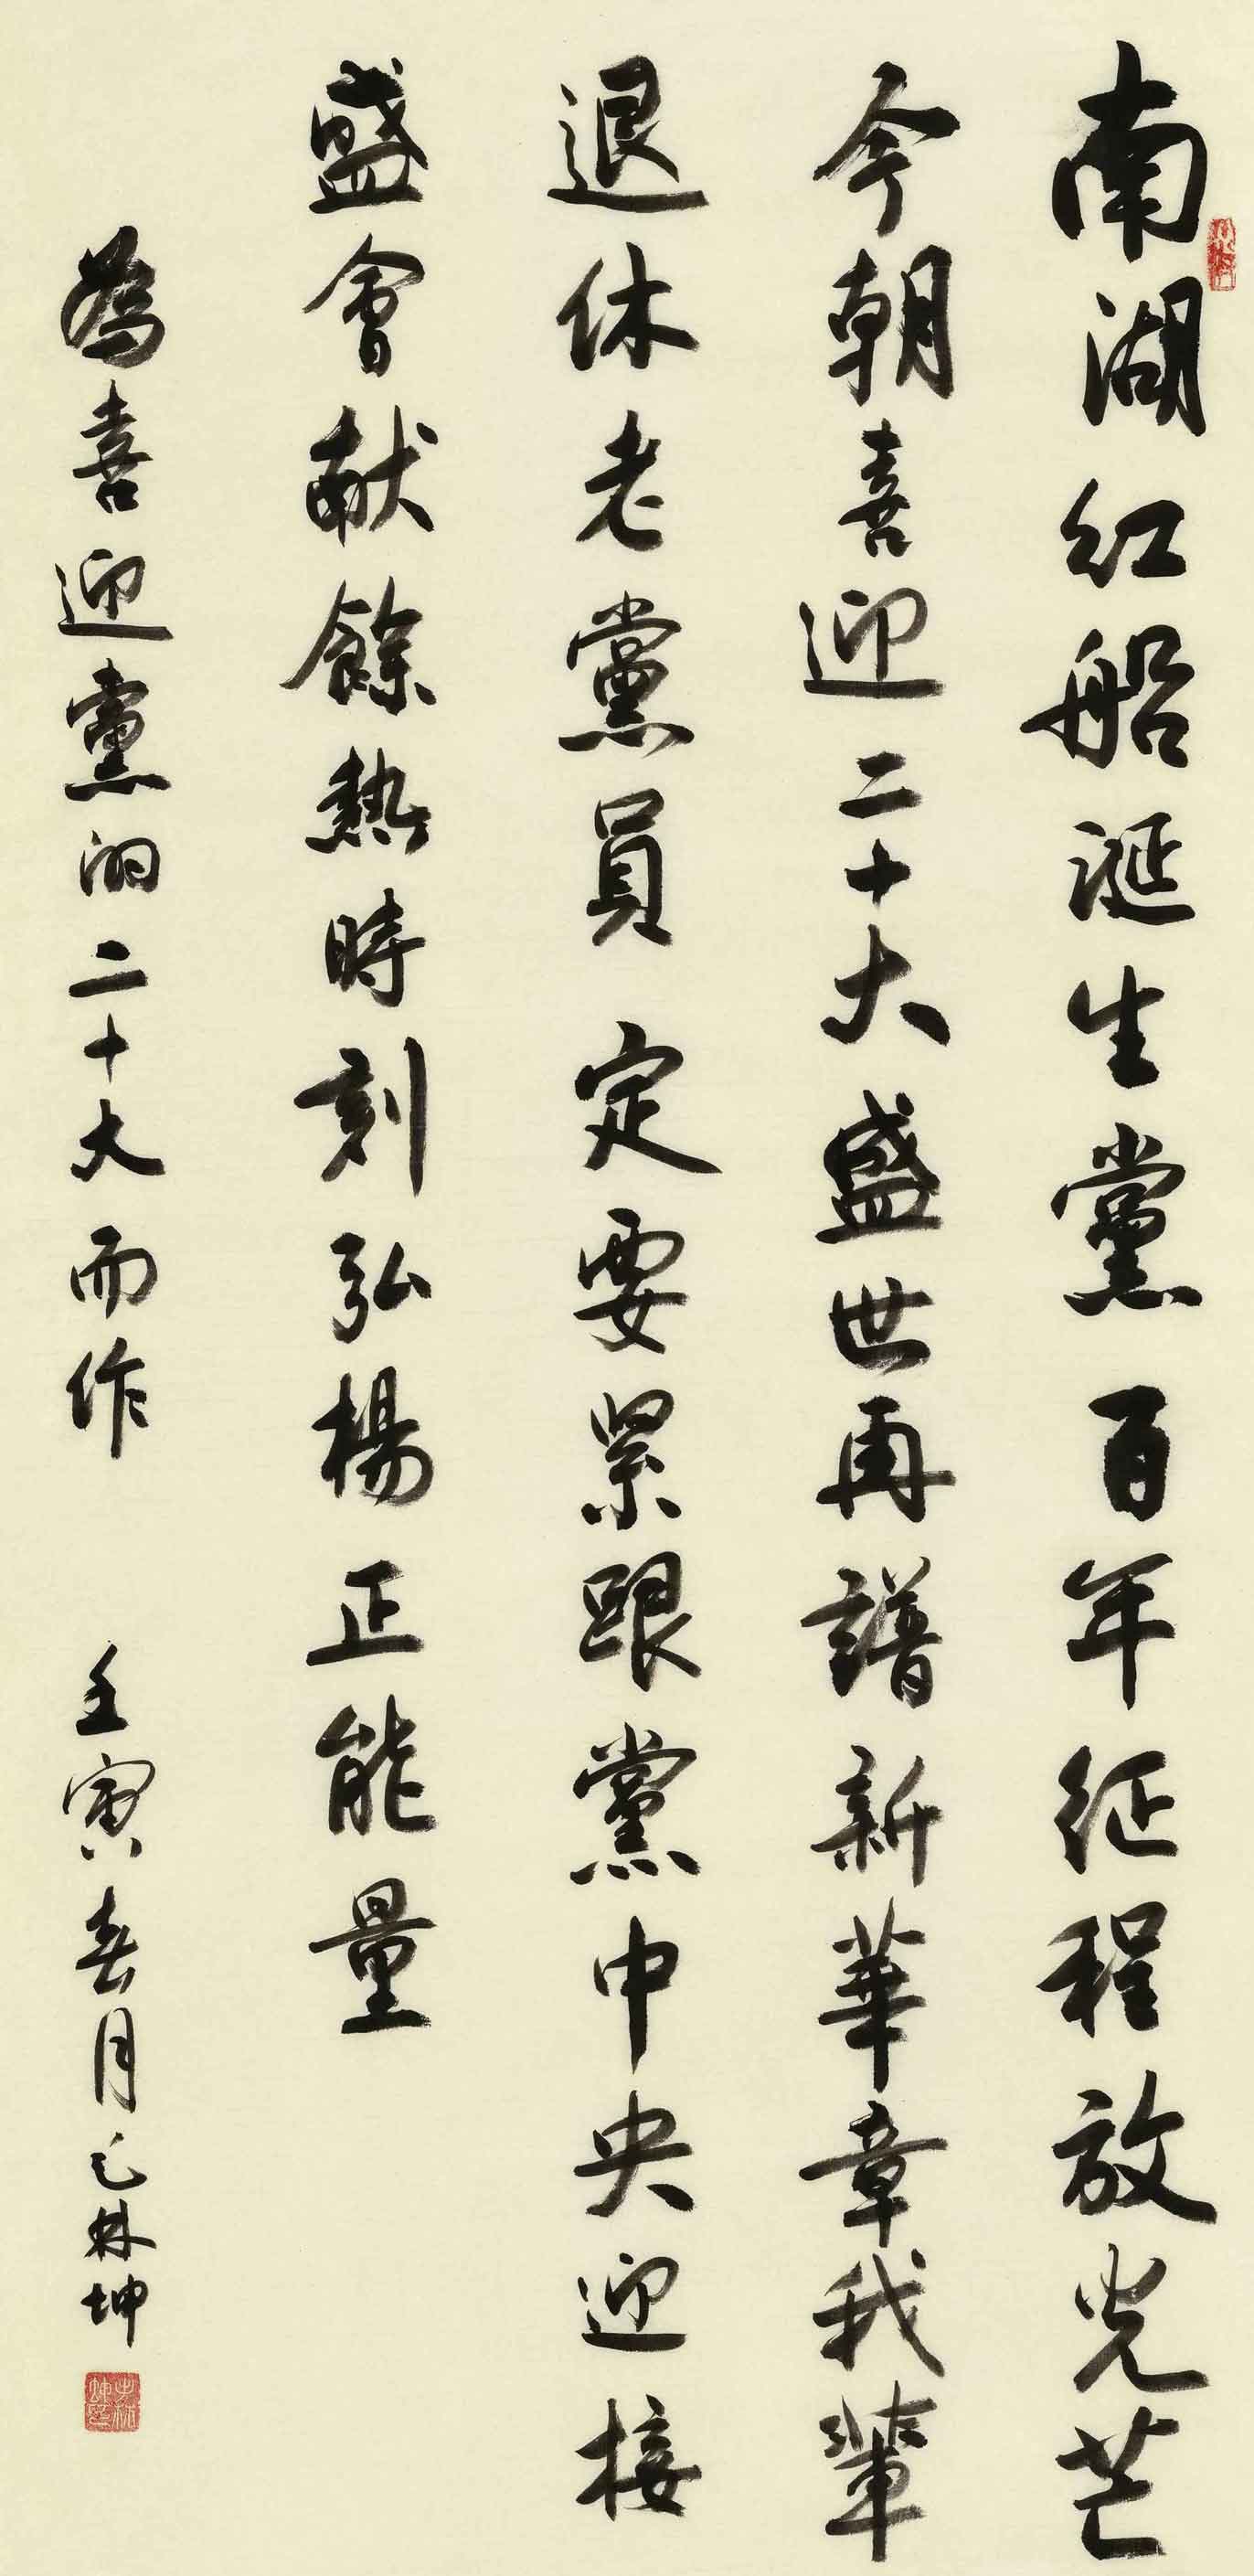 南湖红船诞生黨百年征程放光芒
今朝喜迎二十大盛世再譜新華章我輩
退休老黨員定要紧跟黨中央迎接
盛會献餘熱時刻弘楊正能量
為喜迎黨的二十大而作
壬寅春月 林坤